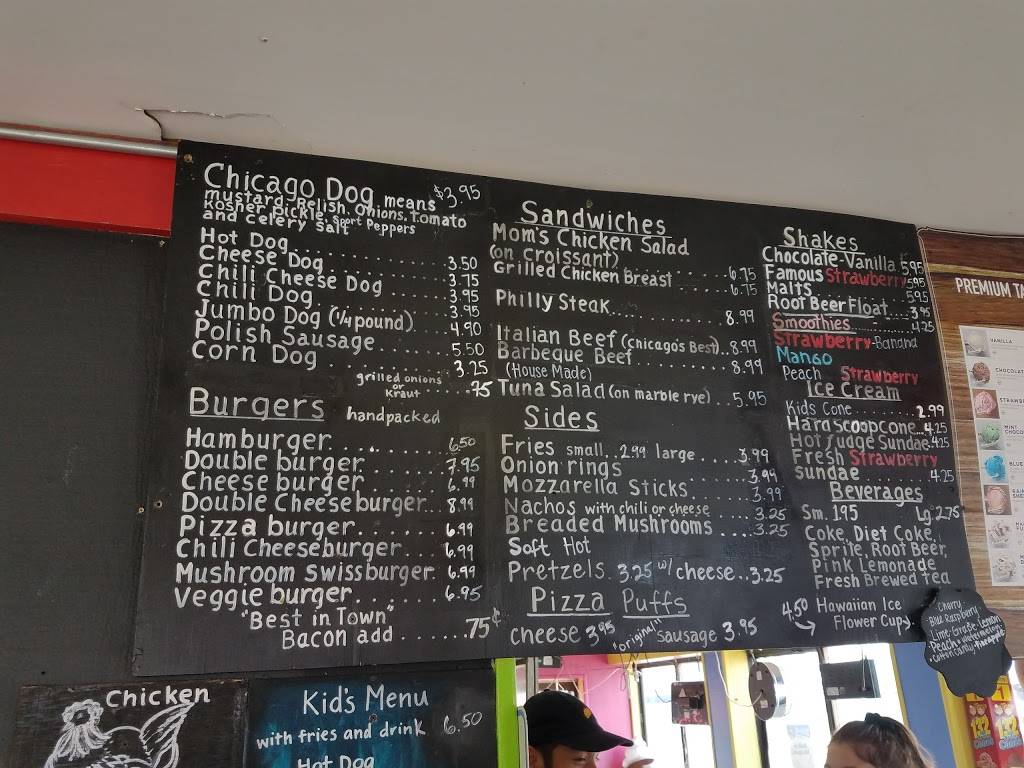 Chicago Dog means $3.95
mustard, Relish, Onions, Tomato
Kosher Pickle, Sport Peppers
and Celery Salt
Hot Dog.......... 3.50
Cheese Dog.......... 3.75
Chili Cheese Dog.... 3.95
Chili Dog.......... 3.95
Jumbo Dog (1/4 pound).. 4.90
Polish Sausage..... 5.50
Corn Dog.......... 3.25
grilled onions
or
Kraut .75
Burgers handpacked
Hamburger.......... 6.50
Double burger...... 7.95
Cheese burger...... 6.99
Double Cheeseburger.. 8.99
Pizza burger....... 6.99
Chili Cheeseburger... 6.99
Mushroom Swissburger. 6.99
Veggie burger...... 6.95
"Best in Town"
Bacon add.......75¢
Sandwiches
Mom's Chicken Salad
(on croissant)....... 6.75
Grilled Chicken Breast .. 6.75
Philly Steak.......... 8.99
Italian Beef (Chicago's Best)..8.99
Barbeque Beef....... 8.99
(House Made)
Tuna Salad (on marble rye)...5.95
Sides
Fries small..2.99 large....3.99
Onion rings.......... 3.99
Mozzarella Sticks..... 3.99
Nachos with chili or cheese....3.25
Breaded Mushrooms....3.25
Soft Hot
Pretzels. 3.25 w/ cheese..3.25
Pizza Puffs
cheese 3.95 "original" sausage 3.95
Shakes
Chocolate-Vanilla 5.95
Famous Strawberry 5.95
Malts........ 5.95
Root Beer Float... 3.95
Smoothies - 4.25
Strawberry-Banana
Mango
Peach Strawberry
Ice Cream
Kids Cone........2.99
Hard Scoop Cone...4.25
Hot fudge Sundae.4.25
Fresh Strawberry
Sundae........4.25
Beverages
Sm. 1.95 Lg. 2.75
Coke, Diet Coke,
Sprite, Root Beer,
Pink Lemonade
Fresh Brewed tea
4.50 Hawaiian Ice
Flower Cup
Cherry
Blue Raspberry
Lime Grape Lemon
Peach Watermelon
Cotton Candy Pineapple
Chicken
Kid's Menu
with fries and drink 6.50
Hot Dog
PREMIUM TA
VANILLA
CHOCOLAT
STRAWB
MINT
CHOCO
BLUE